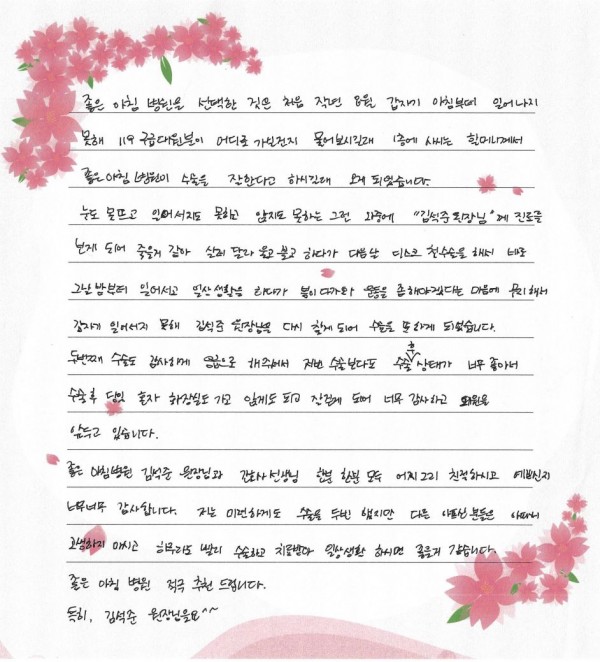 좋은 아침 병원을 선택한 것은 처음 작년 8월 갑자기 아침부터 일어나지
못해 119 구급대원분이 어디로 가실건지 물어보시길래 1층에 사시는 할머니께서
좋은아침 병원이 수술을 잘한다고 하시길래 오게 되었습니다.
눈도 못뜨고 일어서지도 못하고 앉지도 못하는 그런 와중에 "김석준 원장님"께 진료를
보게 되어 죽을거 같아 살려 달라 울고 불고 하다가 다음날 디스크 첫수술을 해서 바로
그날 밤부터 일어서고 일상생활을 하다가 봄이 다가와 운동을 좀 해야겠다는 마음에 무리해서
갑자기 일어서지 못해 김석준 원장님을 다시 찾게 되어 수술을 또 하게 되었습니다.
두번째 수술도 감사하게 응급으로 해주셔서 저번 수술보다도 수술 후 상태가 너무 좋아서
수술 후 당일 혼자 화장실도 가고 있게도 되고 잘걷게 되어 너무 감사하고 퇴원을
앞두고 있습니다.
좋은 아침병원 김석준 원장님과 간호사 선생님 한분 한분 모두 어찌 그리 친절하시고 예쁘신지
너무너무 감사합니다. 저는 미련하게도 수술을 두번 했지만 다른 아프신 분들은 아파서
고생하지 마시고 하루라도 빨리 수술하고 치료받아 일상생활 하시면 좋을거 같습니다.
좋은 아침 병원 적극 추천 드립니다.
특히, 김석준 원장님을요^^